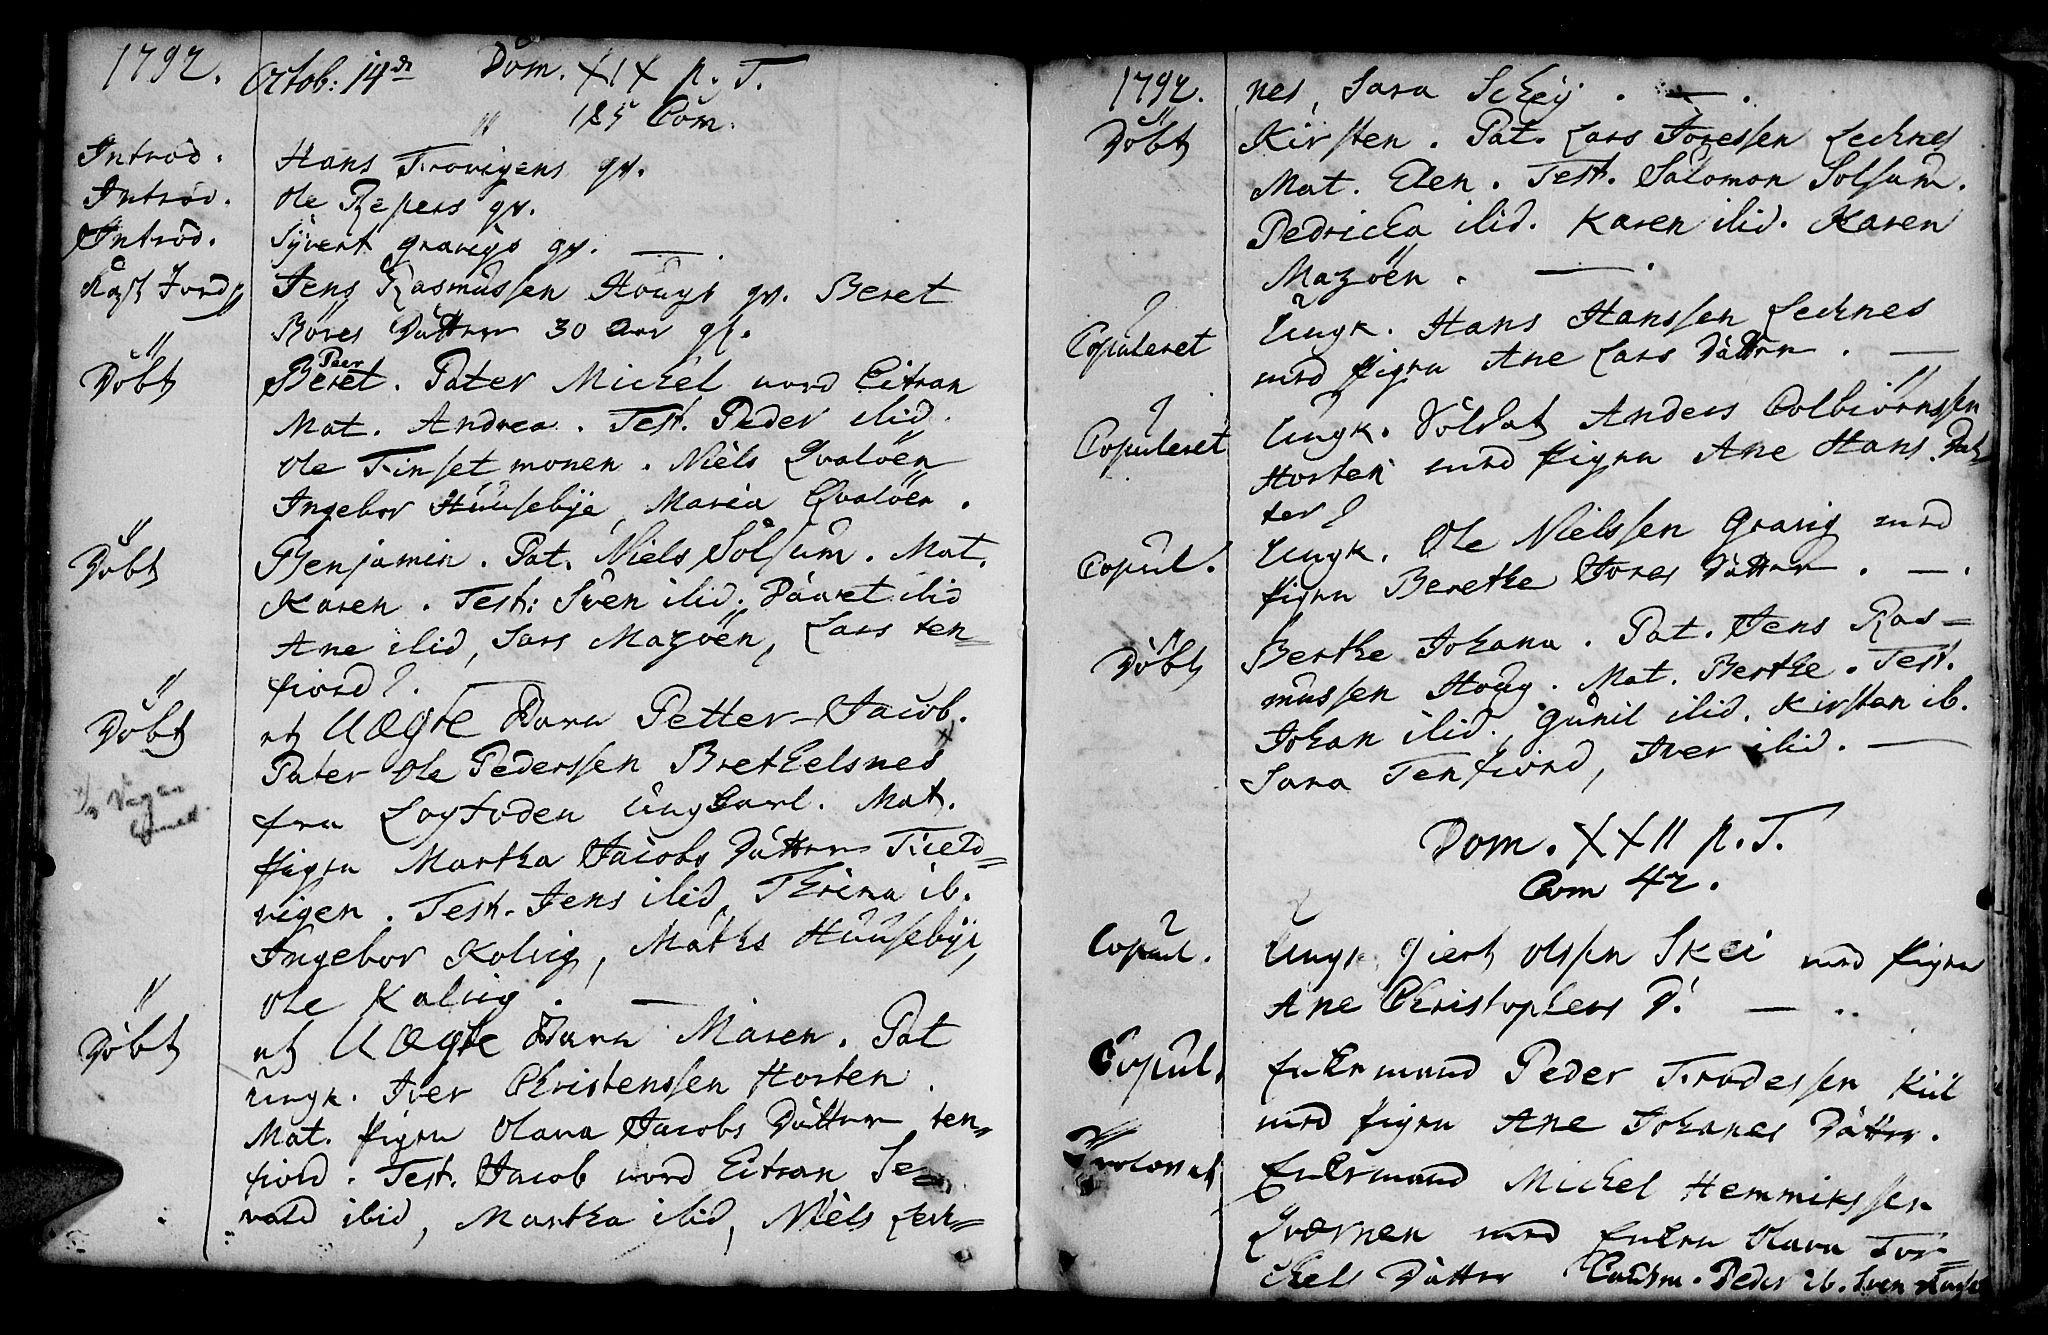 1792. Octob: 14de Dom. XIX p. T.
" 125 Com.
Introd. Hans Frovigens qv.
Introd. Ole Repers qv.
Introd. Syvert Gravigs qv. —
Jens Rasmussen Hougs qv. Beret
Döbt Beret. Peer Pater Michel nord Eitran
Mat. Andrea. Test. Peder ibid.
Ole Finset monen. Niels Qvalöen
Ingebor Huusebye, Maria Qvalöen.
Döbt Benjamin. Pat. Niels Solsum. Mat.
Karen. Test: Sven ibid. Daaret ibid
Ane ibid, Lars Mazöen, Lars ten=
fiord. —
Döbt et UÆgte Barn Petter Jacob.
Pater Ole Pederssen Brethelsnes
fra Lofoden Ungkarl. Mat.
Pigen Martha Jacobs Datter Field=
vigen. Test. Jens ibid, Thrina ib.
Ingebor Kolvig, Maths Huusebye,
Ole Kolvig. —
Döbt et UÆgte Barn Maren. Pat
Ungk. Iver Christenssen Horten.
Mat. Pigen Olava Jacobs Datter ten=
fiord. Test. Jacob nord Eitran Se=
vald ibid, Martha ibid, Niels Lech=
1792. nes, Sara Schey. —.
Döbt Kirsten. Pat. Lars Joressen Lechnes
Mat. Elen. Test. Salomon Solsum.
Pedricha ibid. Karen ibid. Karen
Mazöen. —.
Copuleret Ungk. Hans Hanssen Lechnes
med Pigen Ane Lars Datter. —
Copuleret Ungk. Soldat Anders Colbiörnssen
Horten med Pigen Ane Hans Dat=
ter
Copul. Ungk. Ole Nielssen Gravig med
Pigen Berethe Jores Datter. —.
Döbt Berthe Johana. Pat. Jens Ras=
mussen Houg. Mat. Berthe. Test.
Johan ibid. Gunil ibid. Kirsten ib.
Sara Tenfiord, Iver ibid. —
Dom. XXII p. T.
Com 42.
Copul. Ungk. Giert Olssen Skei med Pigen
Ane Christophers D. — ..
Copul. Enkemand Peder Frodessen Kiil
med Pigen Ane Johanes Datter.
Trolovet Enkemand Michel Hemmikssen
Qværnen med Enken Olava Tor=
chels Datter Cautm. Peder ib. Sven